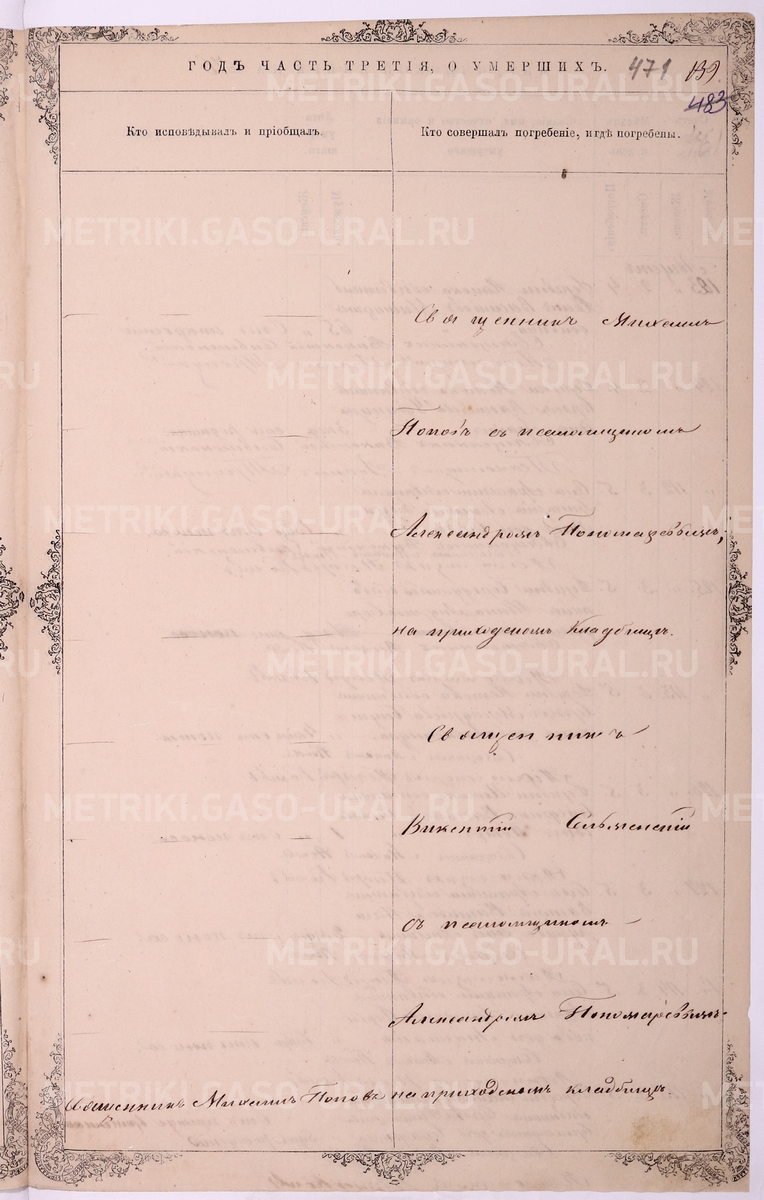 ГОДЪ ЧАСТЬ ТРЕТІЯ, О УМЕРШИХЪ. 471 139.
483
Кто исповѣдывалъ и пріобщалъ.
Кто совершалъ погребеніе, и гдѣ погребены.
Священникъ Михаилъ
Поповъ съ псаломщикомъ
Александромъ Пономаревымъ,
на приходскомъ кладбищѣ.
Священникъ
Викентій
съ псаломщикомъ
Александромъ Пономаревымъ
Священникъ Михаилъ Поповъ на приходскомъ кладбищѣ.
METRIKI.GASO-URAL.RU